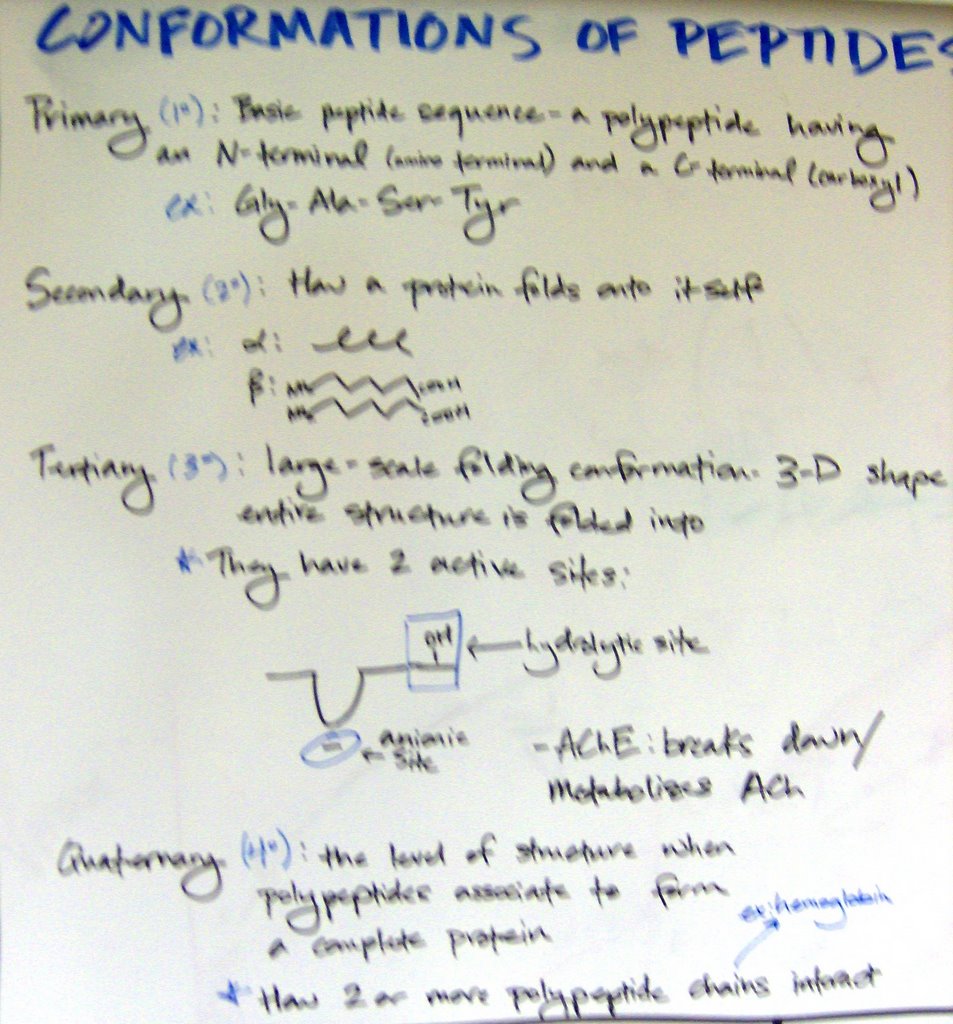 CONFORMATIONS OF PEPTIDES
Primary (1°): Basic peptide sequence - a polypeptide having
an N-terminal (amino terminal) and a C-terminal (carboxyl)
ex: Gly-Ala-Ser-Tyr
Secondary (2°): How a protein folds onto itself
ex: α:
β: NH₂ COOH
NH₂ COOH
Tertiary (3°): large-scale folding conformation. 3-D shape
entire structure is folded into
* They have 2 active sites:
OH ← hydrolytic site
- ← anionic
site
- AChE: breaks down/
metabolizes ACh
Quaternary (4°): the level of structure when
polypeptides associate to form
a complete protein
ex: hemoglobin
* How 2 or more polypeptide chains interact